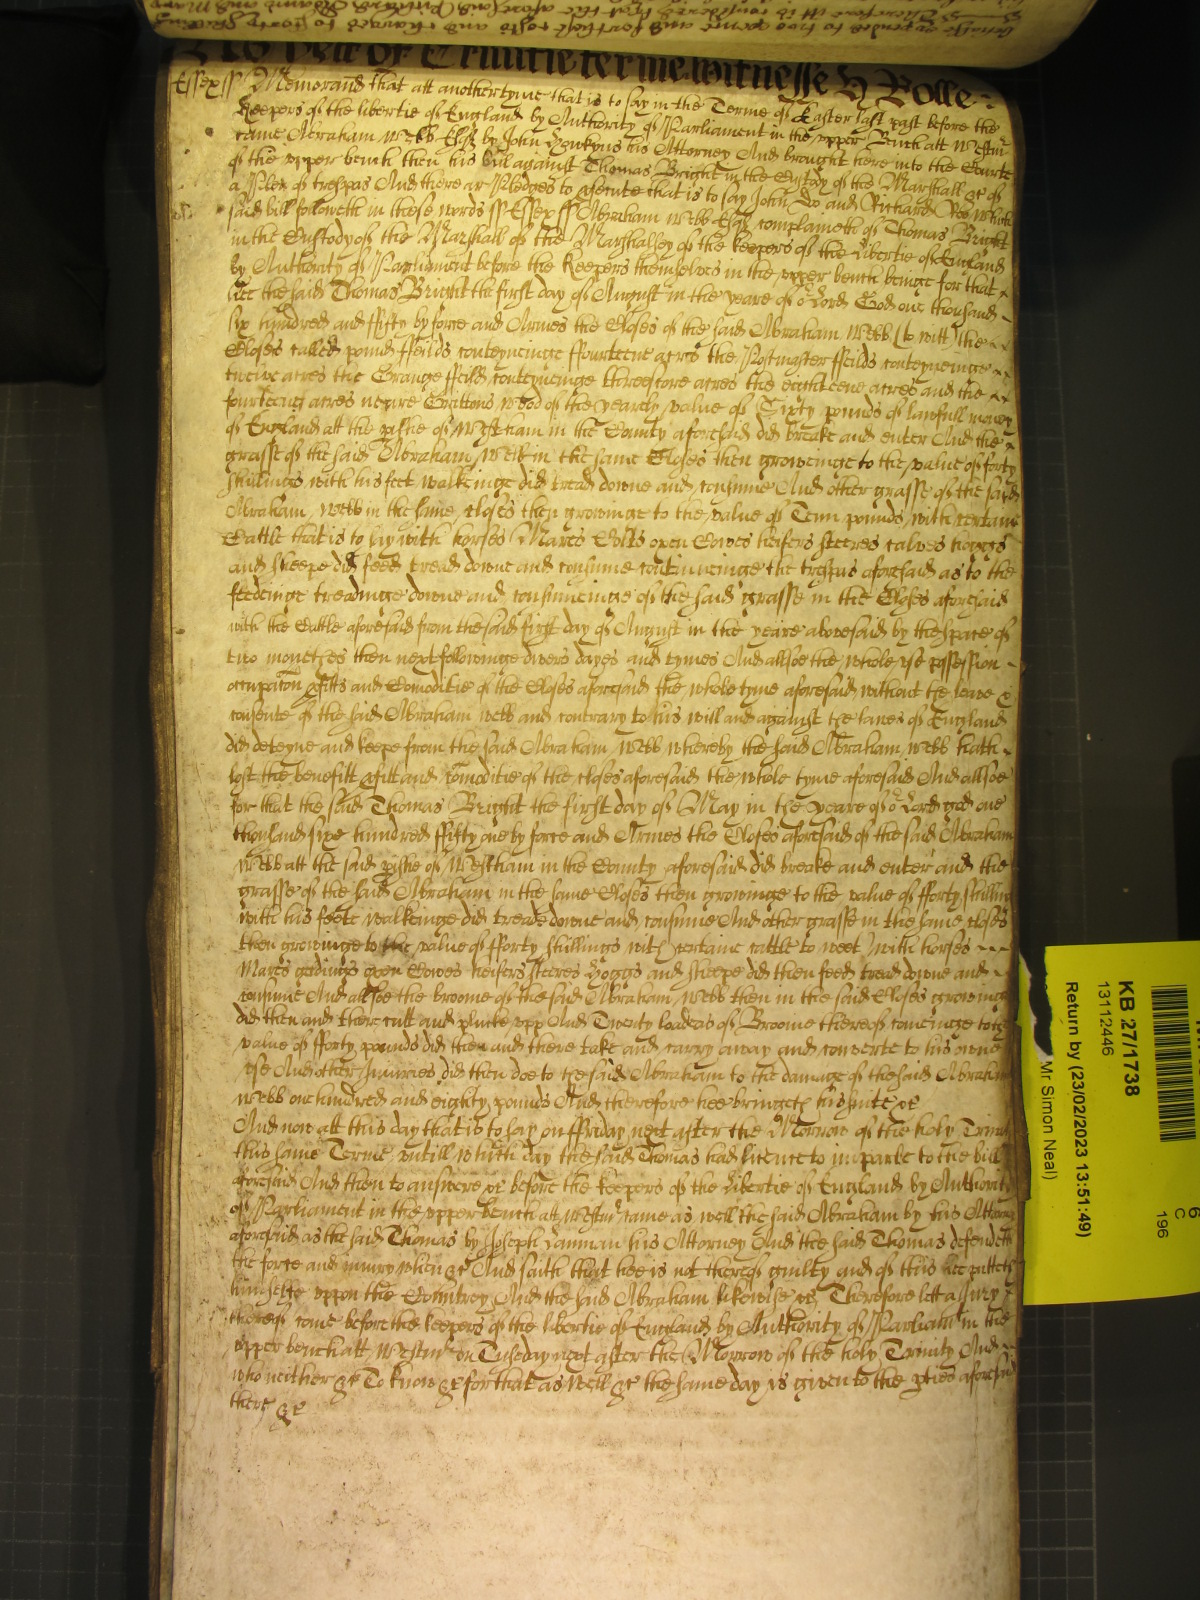 of Trinitie terme witnesse H Rolle
Essex ss Memorand that att another tyme that is to say in the Terme of Easter last past before the
Keepers of the libertie of England by Authority of Parliament in the upper Bench att Westmr
came Abraham Webb Esqr by John his Attorney And brought here into the Courte
of the upper bench then his bill against Thomas Bright in the Custody of the Marshall &c of
a Plea of trespas And there ar Pledges to psecute that is to say John Do and Richard Roe which
said bill followeth in these words ss Essex ss Abraham Webb Esqr complaineth of Thomas Bright
in the Custody of the Marshall of the Marshalsey of the keepers of the Libertie of England
by Authority of Parliament before the Keepers themselves in the upper bench beinge for that
hee the said Thomas Bright the first day of August in the yeare of or Lord God one thousand
six hundred and fifty by force and Armes the Closes of the said Abraham Webb (to witt) the
Closes called pound ffeilds conteyneinge ffourteene acres the Postmaster ffeilds conteyneinge
twelve acres the Grange ffeild conteyneinge threescore acres the eighteene acres and the
fourteene acres neere Wood of the yearely value of Sixty pounds of lawfull money
of England att the pishe of Westham in the County aforesaid did breake and enter And the
grasse of the said Abraham Webb in the same Closes then groweinge to the value of forty
shillings with his feet walkeinge did tread downe and consume And other grasse of the said
Abraham Webb in the same closes then growinge to the value of Tenn pounds with certaine
Cattle that is to say with horses Mares Colts oxen Cowes heifers steeres calves hoggs
and sheepe did feed tread downe and consume contineweinge the trespas aforesaid as to the
feedeinge treadinge downe and consumeinge of the said grasse in the Closes aforesaid
with the Cattle aforesaid from the said first day of August in the yeare abovesaid by the space of
two monethes then next followinge divers dayes and tymes And allsoe the whole use possession
occupacon pfitts and Comoditie of the Closes aforesaid the whole tyme aforesaid without the leave &
consente of the said Abraham Webb and contrary to his will and against the lawes of England
did deteyne and keepe from the said Abraham Webb whereby the said Abraham Webb hath
lost the benefitt pfitt and comoditie of the closes aforesaid the whole tyme aforesaid And allsoe
for that the said Thomas Bright the first day of May in the yeare of or Lord god one
thousand sixe hundred fifty one by force and Armes the Closes aforesaid of the said Abraham
Webb att the said pishe of Westham in the County aforesaid did breake and enter and the
grasse of the said Abraham in the same Closes then growinge to the value of fforty shillings
with his feete walkeinge did treade downe and consume And other grasse in the same closes
then growinge to the value of fforty shillings with certaine cattle to weet with horses
Mares geldings oxen Cowes heifers steeres Hoggs and sheepe did then feed tread downe and
consume And allsoe the broome of the said Abraham Webb then in the said Closes growinge
did then and there cutt and plucke upp And Twenty loades of Broome thereof comeinge to the
value of fforty pounds did then and there take and carry away and converte to his owne
use And other Iniuries did then doe to the said Abraham to the damage of the said Abraham
Webb one hundred and eighty pounds And therefore hee bringeth his suite &c
And now att this day that is to say on ffriday next after the Morrow of the holy Trinity
this same Terme untill which day the said Thomas had licence to imparle to the bill
aforesaid And then to answere &c before the keepers of the Libertie of England by Authority
of Parliament in the upper bench att Westmr came as well the said Abraham by his Attorney
aforesaid as the said Thomas by Joseph his Attorney And the said Thomas defendeth
the force and iniury when &c And saith that hee is not thereof guilty and of this hee putteth
himselfe uppon the Countrey And the said Abraham likewise &c Therefore lett a Jury
thereof come before the keepers of the libertie of England by Authority of Parliamt in the
upper bench att Westmr on Tuesday next after the Morrow of the holy Trinity And
who neither &c To know &c for that as well &c the same day is given to the pties aforesaid
there &c
KB 27/1738
13112446
Return by (23/02/2023 13:51:49)
Mr. Simon Neal)
C
196